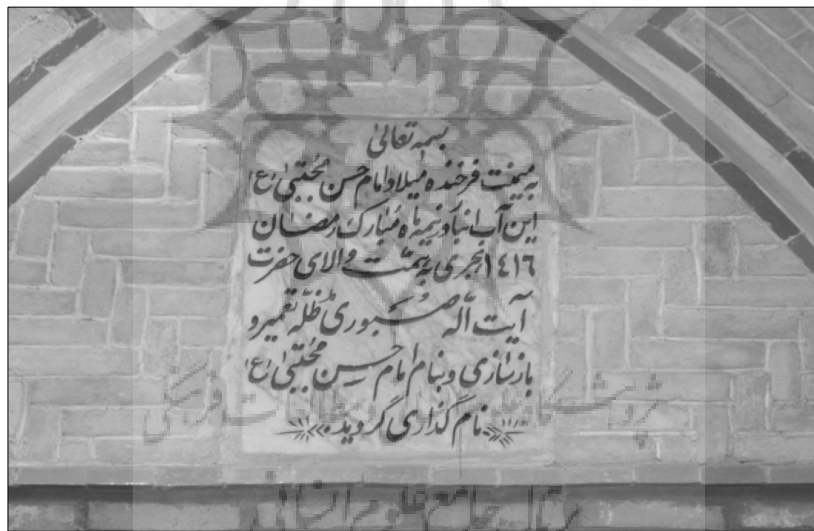 بسمه تعالیٰ
به میمنت فرخنده میلاد امام حسن مُجتبیٰ (ع)
این آب انبار در نیمه ماه مُبارک رمضان
۱٤۱٦ هجری به همّت والای حضرت
آیت الّله صبوری مُدّظلّه تعمیر و
بازسازی و بنام امام حسن مجتبیٰ (ع)
نام گذاری گردید.
پژوهشگاه علوم انسانی و مطالعات فرهنگی
پرتال جامع علوم انسانی